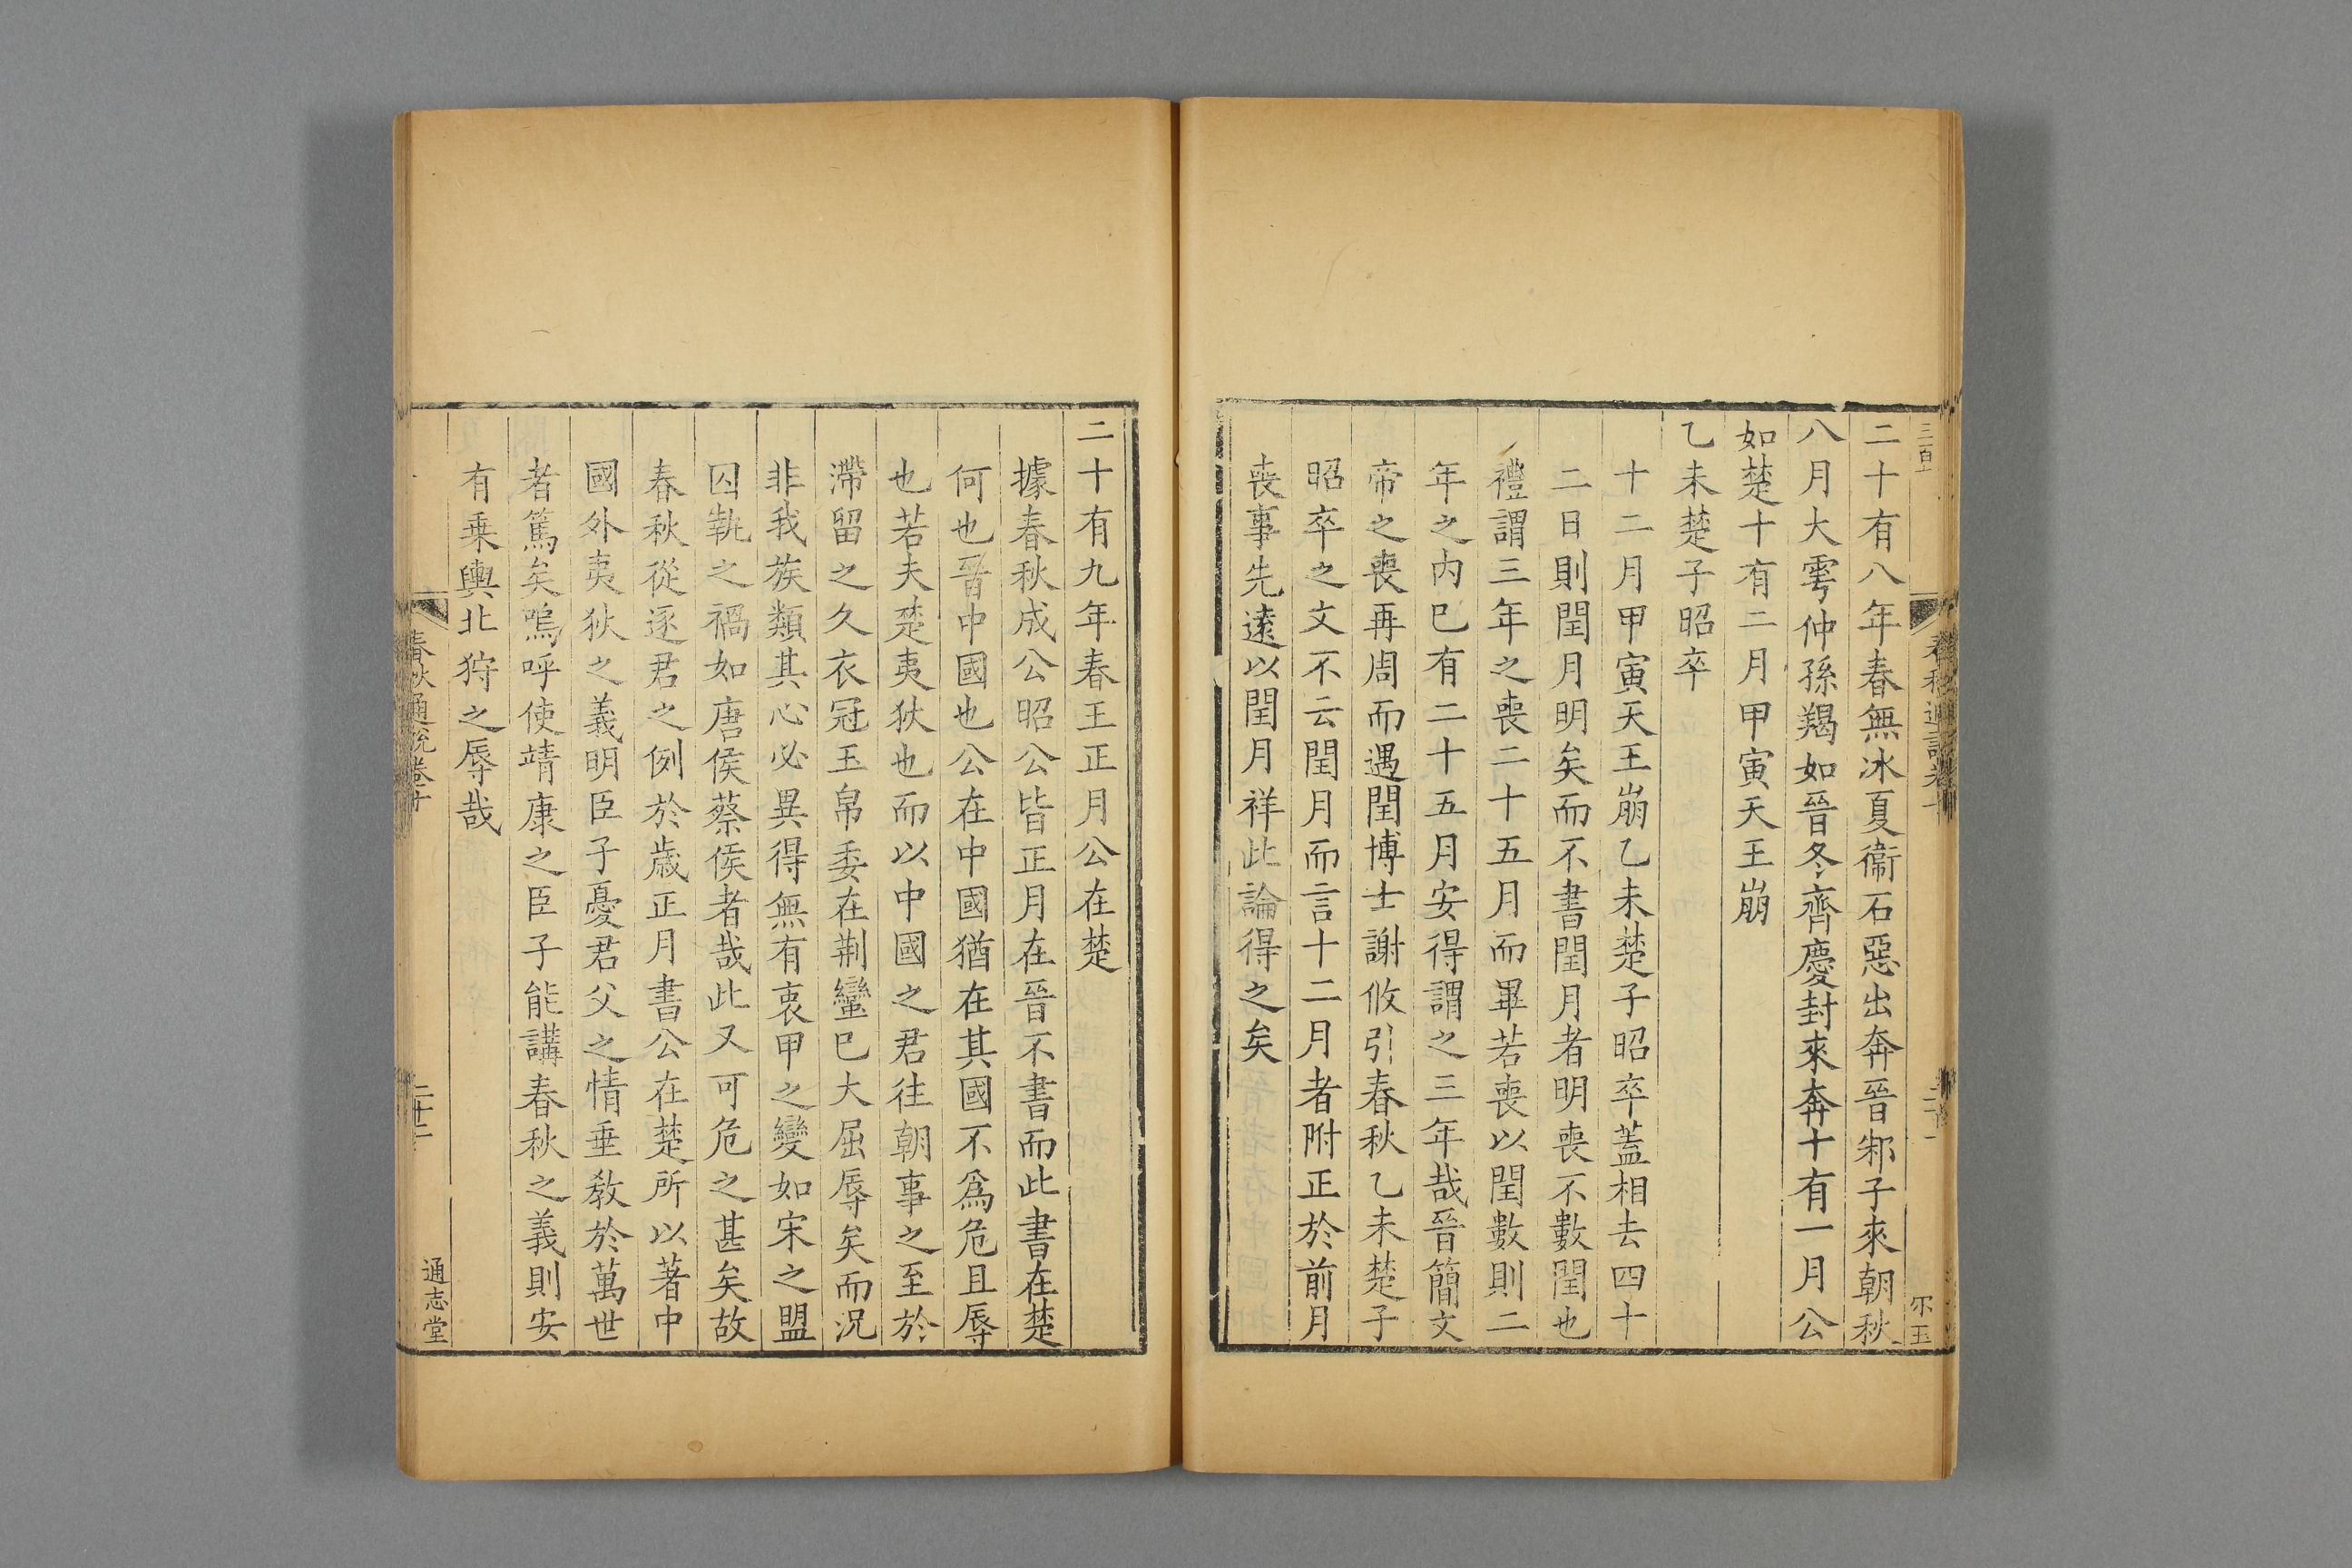 二十有八年春無冰夏衞石惡出奔晉邾子來朝秋
八月大雩仲孫羯如晉冬齊慶封來奔十有一月公
如楚十有二月甲寅天王崩
乙未楚子昭卒
十二月甲寅天王崩乙未楚子昭卒蓋相去四十
二日則閏月明矣而不書閏月者明喪不數閏也
禮謂三年之喪二十五月而畢若喪以閏數則二
年之內巳有二十五月安得謂之三年哉晉簡文
帝之喪再周而遇閏博士謝攸引春秋乙未楚子
昭卒之文不云閏月而言十二月者附正於前月
喪事先遠以閏月祥此論得之矣
二十有九年春王正月公在楚
據春秋成公昭公皆正月在晉不書而此書在楚
何也晉中國也公在中國猶在其國不爲危且辱
也若夫楚夷狄也而以中國之君往朝事之至於
滯留之久衣冠玉帛委在荆蠻巳大屈辱矣而況
非我族類其心必異得無有衷甲之變如宋之盟
囚執之禍如唐侯蔡侯者哉此又可危之甚矣故
春秋從逐君之例於歲正月書公在楚所以著中
國外夷狄之義明臣子憂君父之情垂教於萬世
者篤矣嗚呼使靖康之臣子能講春秋之義則安
有乗輿北狩之辱哉
春秋通說卷十
二十二
通志堂